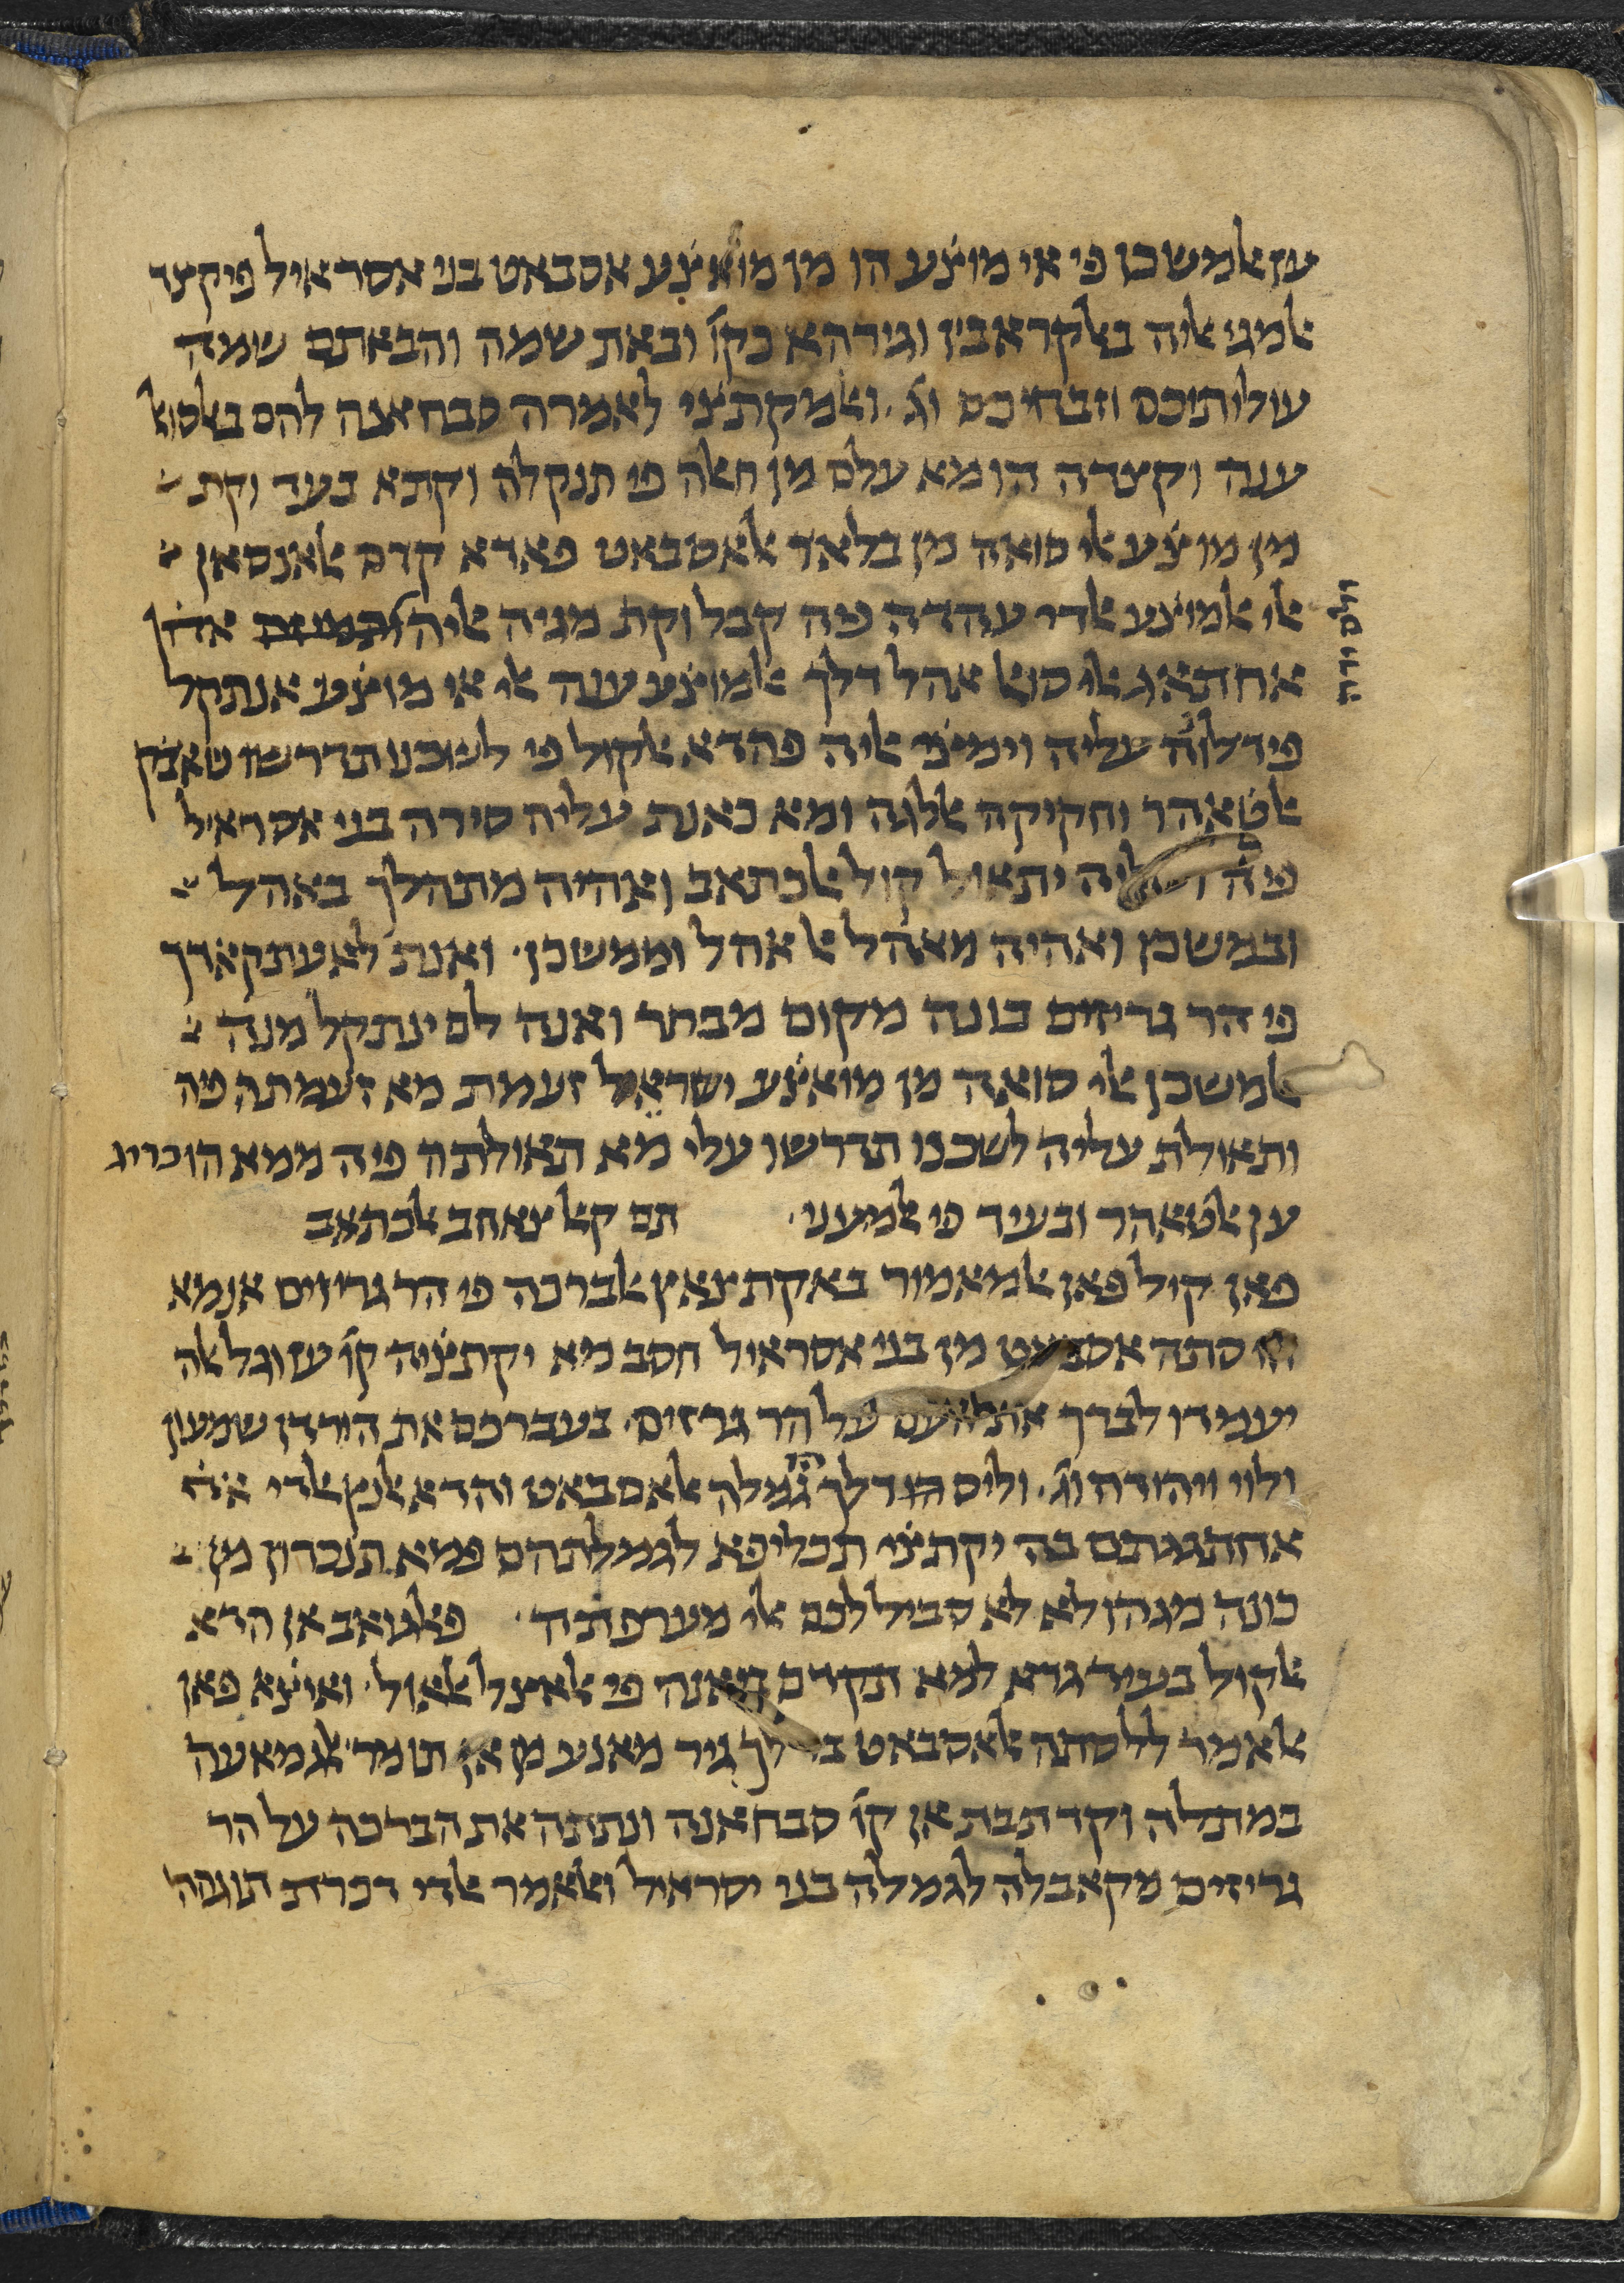 ען אלמשכן פי אי מוצׄע הו מן מואצׄע אסבאט בני אסראיל פיקצד
אלמגי אליה באלקראבין וגירהא כקוׄ ובאת שמה והבאתם שמה
עולותיכם וזבחיכם וגׄ. ואלמקתצׄי לאמרה סבחאנה להם באלסואל
ענה וקצדה הו מא עלם מן חאלה פי תנקלה וקתא בעד וקת
מן מוצׄע אלי סואה מן בלאד אלאסבאט פאדא קדם אלאנסאן
אלי אלמוצׄע אלדי עהדה פיה קבל וקת מגיה אליה אדׄן
אחתאג אלי סואל אהל דלך אלמוצׄע ענה אלי אי מוצׄע אנתקל
פידלוה עליה וימצׄי אליה פהדא אלקול פי לשכנו תדרשו טאבק
אלטׄאהר וחקיקה אללגה ומא כאנת עליה סירה בני אסראיל
פיה יתאול קול אלכתאב ואהיה מתהלך באהל
ובמשכן ואהיה מאהל אל אהל וממשכן. ואנת לאעתקאדך
פי הר גריזים כונה מקום מבחר ואנה לם ינתקל מנה
אלמשכן אלי סואה מן מואצׄע ישראל זעמת מא זעמתה פיה
ותאולת עליה לשכנו תדרשו עלי מא תאולתה פיה ממא הו כריג
ען אלטׄאהר ובעיד פי אלמעני. תם קאל צאחב אלכתאב
פאן קיל פאן אלמאמור באקתצאץ אלברכה פי הר גריזים אנמא
הו סתה אסבאט מן בני אסראיל חסב מא יקתצׄיה קוׄ עז וגל אלה
יעמדו לברך את העם על הר גריזים. בעברכם את הירדן שמעון
ולוי ויהודה וגׄ. וליס הו דלך גׄמלה אלאסבאט והדא אלנץ אלדי
אחתגגתם בה יקתצׄי תכליפא לגמלתהם פמא תנכרון מן
כונה מגהולא לא סביל לכם אלי מערפתה. פאלגואב אן הדא
אלקול בעיד גדא למא תקדם ביאנה פי אלאצל אלאול. ואיצׄא פאן
אלאמר ללסתה אלאסבאט גיר מאנע מן אן תומר אלגמאעה
במתלה וקד תבת אן קוׄ סבחאנה ונתתה את הברכה על הר
גריזים מקאבלה לגמלה בני יסראיל ואלאמר אלדי דכרת תוגהה